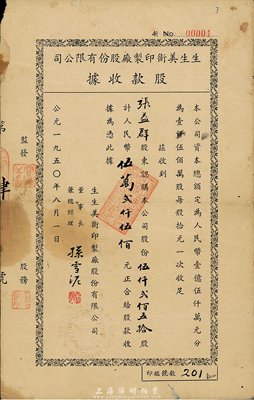 新 No. 00001
生生美術印製廠股份有限公司
股款收據
本公司資本總額定為人民幣壹億伍仟萬元分
為壹仟伍佰萬股每股拾元一次收足
茲收到
張益群股東認購本公司股份伍仟弍佰五拾股
計人民幣伍萬弍仟伍佰元正合給股款收
據為憑此據
生生美術印製廠股份有限公司
董事長
兼總經理 孫雪泥
公元一九五〇年八月一日
監發
股務
印鑑號數 201
上海陽明拍賣